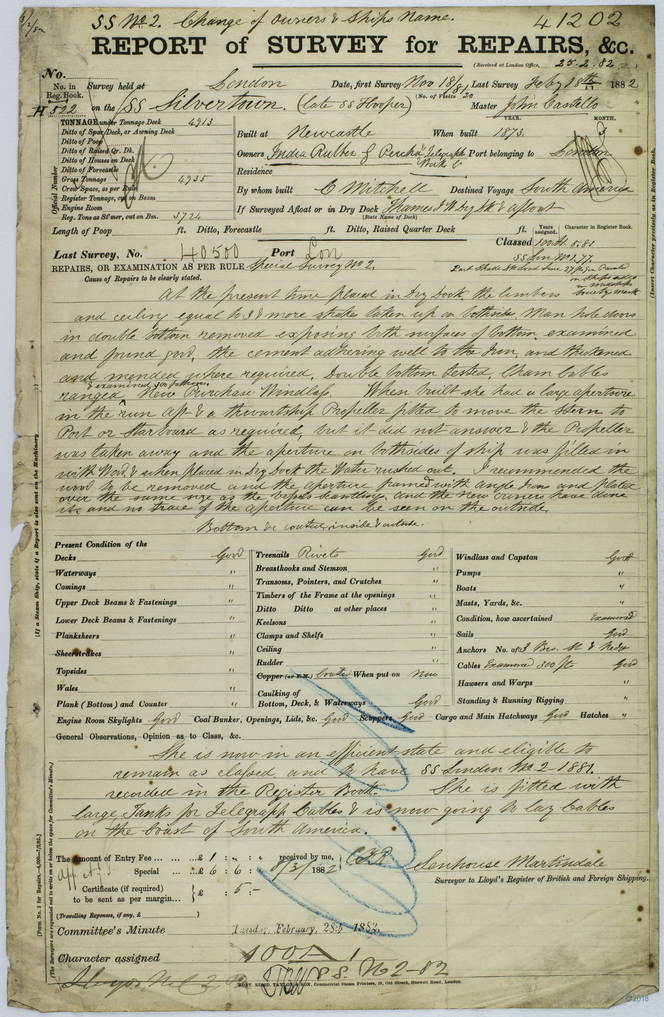 SS No. 2. Change of Owners & Ships Name. 41202
REPORT of SURVEY for REPAIRS, &c.
(Received at London Office, 25.2.82
No.
No. in Reg. Book. Survey held at London Date, first Survey Nov 18/81 Last Survey Feby 18th 1882
(No. of Visits 20
522 on the SS Silvertown. (late SS Hooper) Master John Castello
TONNAGE under Tonnage Deck 4913
Ditto of Spar Deck, or Awning Deck
Ditto of Poop
Ditto of Raised Qr. Dk.
Ditto of Houses on Deck
Ditto of Forecastle
Gross Tonnage 4935
Crew Space, as per Rule
Register Tonnage, out on Beam
Engine Room
Reg. Tons as St'mer, cut on Bm. 3724
Official Number
YEAR. MONTH.
Built at Newcastle When built 1873.
Owners India Rubber G Percha & Telegraph Works Co Port belonging to London
Residence
By whom built C Mitchell Destined Voyage South America
If Surveyed Afloat or in Dry Dock Thames I W Dry Dk & afloat
(State Name of Dock)
Length of Poop ft. Ditto, Forecastle ft. Ditto, Raised Quarter Deck ft.
Years assigned. Character in Register Book.
Classed 100A1. 5.81
SS Lon No 1.77.
Last Survey, No. 40500 Port Lon
REPAIRS, OR EXAMINATION AS PER RULE Special Survey No 2.
Cause of Repairs to be clearly stated.
At the present time placed in Dry Dock the limbers
and ceiling equal to 3 & more strakes taken up on bothsides Man hole doors
in double bottom removed exposing both surfaces of bottom, examined
and found good, the cement adhering well to the Iron, and thickened
and mended where required. Double bottom tested, Chain Cables
ranged & examined 300 fathoms. New Purchase Windlass. When built she had a large aperture
in the run aft & a thwartship Propeller fitted to move the Stern to
Port or Starboard as required, but it did not answer & the Propeller
was taken away and the aperture on bothsides of ship was filled in
with Wood & when placed in Dry Dock the Water rushed out. I recommended the
wood to be removed and the aperture framed with Angle Iron and plated
over the same size as the Vessels Scantlings. and the New owners have done
it and no trace of the aperture can be seen on the outside.
Bottom & coated inside & outside.
Present Condition of the
Decks Good
Waterways "
Comings "
Upper Deck Beams & Fastenings "
Lower Deck Beams & Fastenings "
Planksheers "
Sheerstrakes "
Topsides "
Wales "
Plank (Bottom) and Counter "
Treenails Rivets Good
Breasthooks and Stemson "
Transoms, Pointers, and Crutches "
Timbers of the Frame at the openings "
Ditto Ditto at other places "
Keelsons "
Clamps and Shelfs "
Ceiling "
Rudder "
Copper (or Y.M.) Coated When put on Now
Caulking of
Bottom, Deck, & Waterways Good
Windlass and Capstan Good
Pumps "
Boats "
Masts, Yards, &c. "
Condition, how ascertained Examined
Sails Good
Anchors No. of 3 Bro. St & Kedge
Cables Examined 300 fts Good
Hawsers and Warps "
Standing & Running Rigging "
Engine Room Skylights Good Coal Bunker, Openings, Lids, &c. Good Scuppers Good Cargo and Main Hatchways Good Hatches "
General Observations, Opinion as to Class, &c.
She is now in an efficient state and eligible to
remain as classed and to have SS London No 2-1881.
recorded in the Register Book. She is fitted with
large Tanks for Telegraph Cables & is now going to lay Cables
on the Coast of South America.
The amount of Entry Fee £ 1 : " : " received by me,
Special £ 6 : 6 : 8/3/ 1882
Certificate (if required) to be sent as per margin £ : 5 : -
(Travelling Expenses, if any, £ )
Senhouse Martindale
Surveyor to Lloyd's Register of British and Foreign Shipping.
Committee's Minute Tuesday, February, 28th 1882.
Character assigned 100A1
S.S. No 2-82
Commercial Steam Printers, 19, Old Street, Goswell Road, London.
(If a Steam Ship, state if a Report is also sent on the Machinery
(Insert Character precisely as in Register Book.
©2018